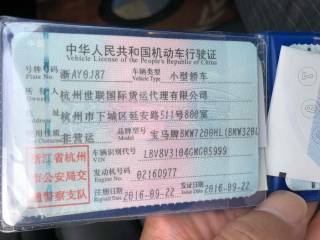 中华人民共和国机动车行驶证
Vehicle License of the People's Republic of China
号牌号码 浙AY0J87 车辆类型 小型轿车
Plate No. Vehicle Type
所有人 杭州世联国际货运代理有限公司
杭州市下城区延安路511号800室
非营运 品牌型号 宝马牌BMW7200HL(BMW320L
Model
浙江省杭州 车辆识别代号 LBV8V3104GMG05999
VIN
市公安局交 发动机号码 0216D977
Engine No.
通警察支队 注册日期 2016-09-22 发证日期 2016-09-22
Register Date Issue Date